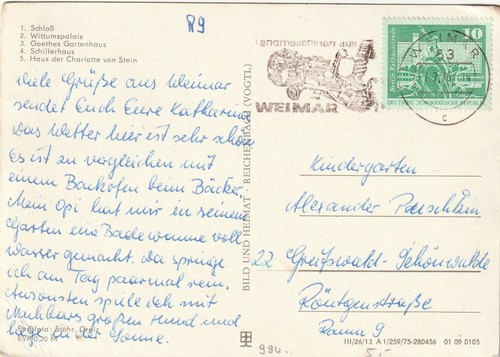 1. Schloß
2. Wittumspalais
3. Goethes Gartenhaus
4. Schillerhaus
5. Haus der Charlotte von Stein
89
Viele Grüße aus Weimar
sendet Euch Eure Katharina
das Wetter hier ist sehr schön
es ist zu vergleichen mit
einem Backofen beim Bäcker.
Mein Opi hat mir in seinem
Garten eine Badewanne voll
Wasser gemacht, da springe
ich am Tag paarmal rein.
Ansonsten spiele ich mit
großen Hund und
liege in der Sonne.
Foto: Stöhr, Greiz
EVP 0,20 M
BILD UND HEIMAT · REICHENBACH (VOGTL)
Landmaschinen aus
WEIMAR
WEIMAR
53
c
10
DEUTSCHE DEMOKRATISCHE REPUBLIK
Kindergarten
Alexander
22 Greifswald-Schönwalde
Röntgenstraße
Raum 9
III/26/13 A 1/259/75-280456 01 09 0105
994.. 5,-